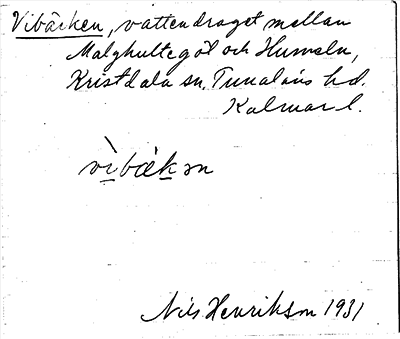 Vibäcken, vattendraget mellan
Malghultegöl och Humeln,
Kristdala sn. Tunaläns hd.
Kalmar l.
vìbäkən
Nils Henrikson 1931